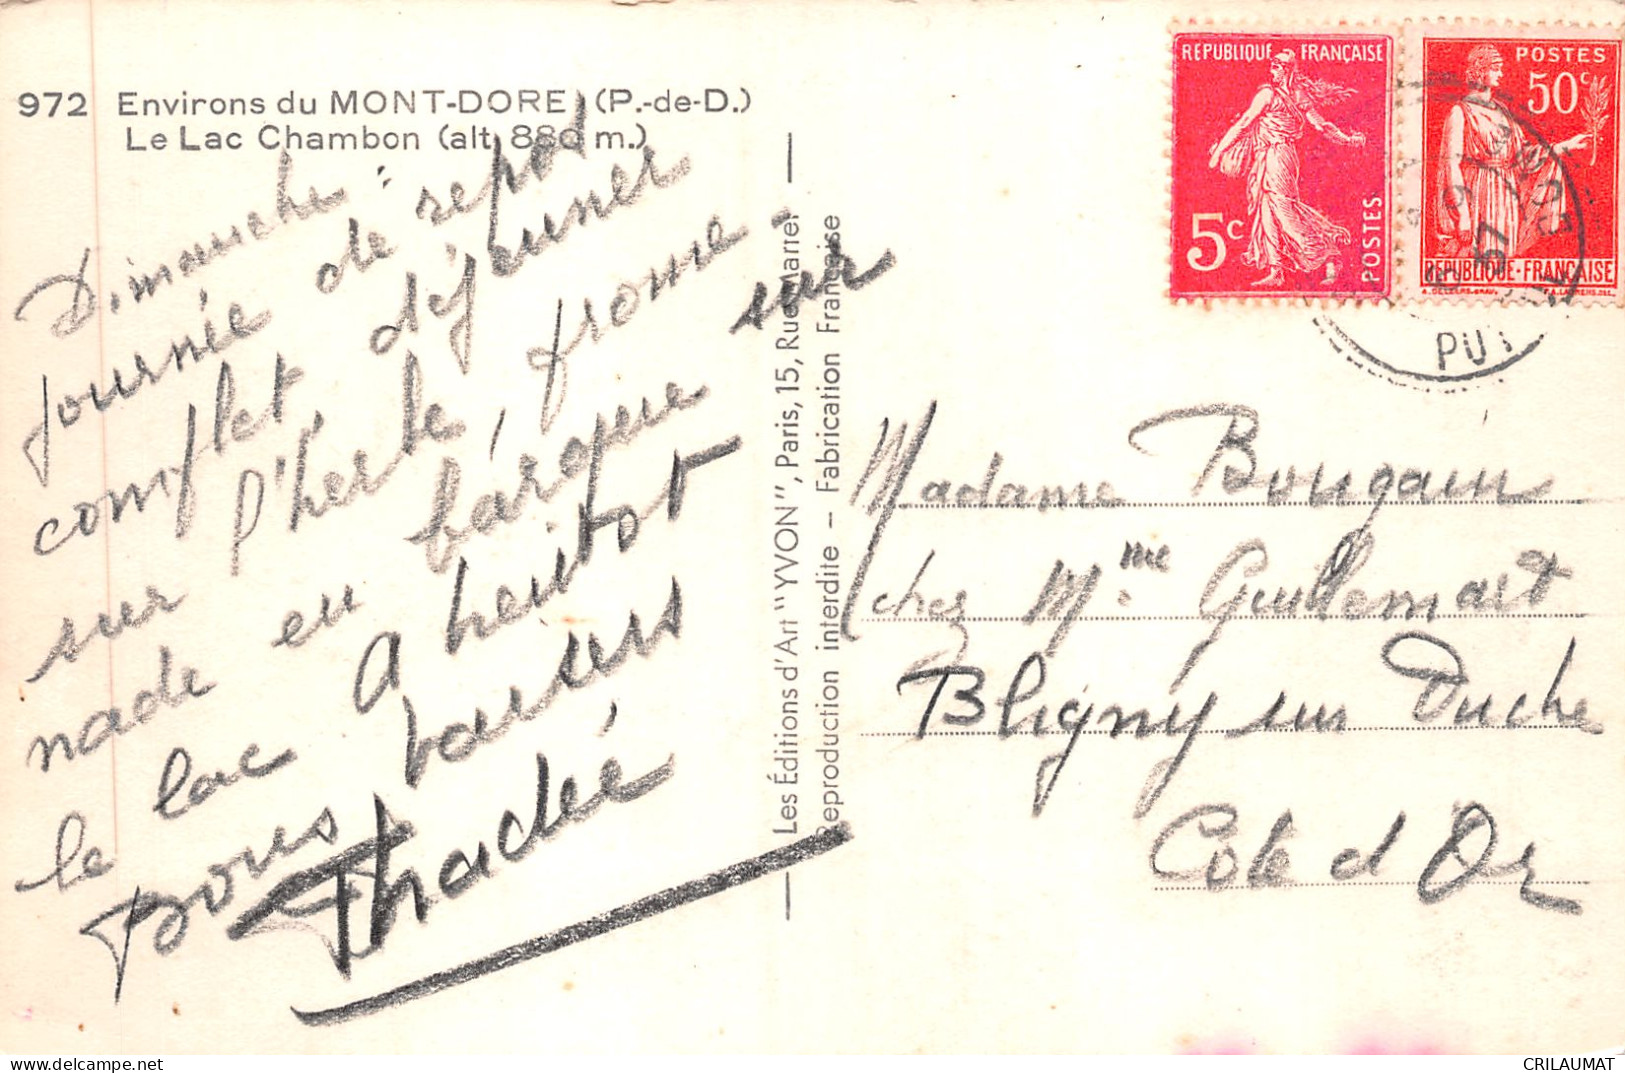 972 Environs du MONT-DORE (P.-de-D.)
Le Lac Chambon (alt. 880 m.)
Dimanche :
journée de repos
complet, déjeuner
sur l'herbe, prome-
nade en barque sur
le lac A bientot
Bons baisers
Thadée
Les Éditions d'Art "YVON", Paris, 15, Rue Martel
Reproduction interdite – Fabrication Française
REPUBLIQUE FRANÇAISE
5c
POSTES
POSTES
50c
REPUBLIQUE-FRANÇAISE
PUY
Madame Bougain
chez Mme Guillemart
Bligny sur Ouche
Cote d Or
CRILAUMAT